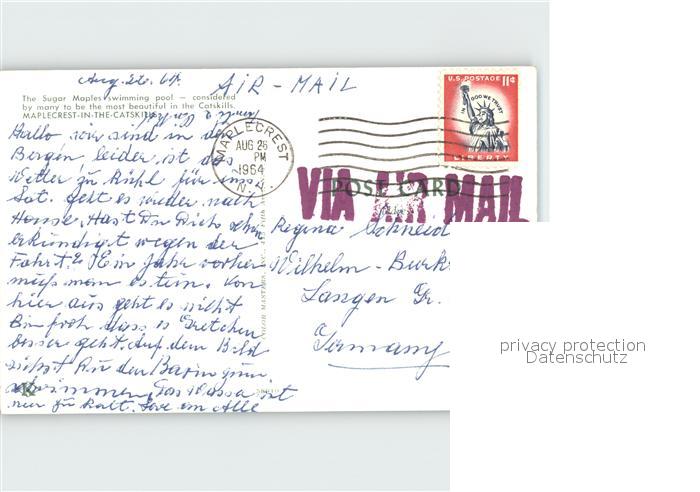 Aug. 26. 64.
AIR - MAIL
The Sugar Maples swimming pool — considered
by many to be the most beautiful in the Catskills.
MAPLECREST-IN-THE-CATSKILLS
U.S. POSTAGE 11¢
IN GOD WE TRUST
LIBERTY
MAPLECREST
AUG 26
PM
1964
N.Y.
POST CARD
VIA AIR MAIL
Hallo wir sind in den
Bergen, leider, ist das
Wetter zu kühl für uns
Sat. geht es wieder nach
House. Hast Du Dich schon
erkündigt wegen der
Fahrt? Ein Jahr vorher
muß man es tun. Von
hier aus geht es nicht
Bin froh dass es Gretchen
besser geht. Auf dem Bild
siehst Du den
schwimmen. Das Wasser ist
nur zu kalt. Love an Alle
Regina Schneid
Wilhelm - Burk
Langen
Germany
privacy protection
Datenschutz